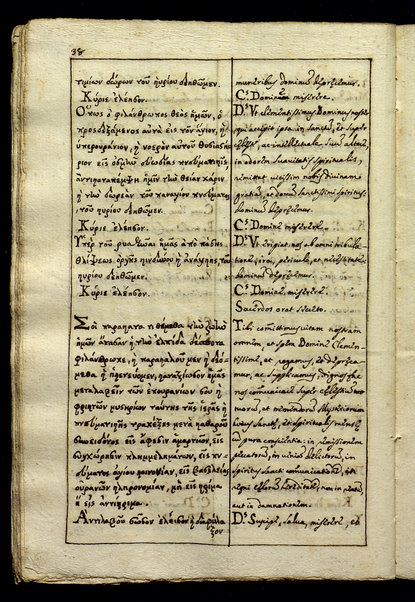 38
τιμίων δώρων τοῦ κυρίου δεηθῶμεν.
Κύριε ἐλέησον.
Ὅπως ὁ φιλάνθρωπος θεὸς ἡμῶν, ὁ
προσδεξάμενος αὐτὰ εἰς τὸν ἅγιον, ἢ
ὑπερουράνιον, ἢ νοερὸν αὐτοῦ θυσιαστή
ριον εἰς ὀσμὴν εὐωδίας πνευματικῆς
ἀντικαταπέμψῃ ἡμῖν τὴν θείαν χάριν
ἢ τὴν δωρεὰν τοῦ παναγίου πνεύματος
τοῦ κυρίου δεηθῶμεν.
Κύριε ἐλέησον.
Ὑπὲρ τοῦ ῥυσθῆναι ἡμᾶς ἀπὸ πάσης
θλίψεως ὀργῆς κινδύνου ἢ ἀνάγκης τοῦ
κυρίου δεηθῶμεν.
Κύριε ἐλέησον.
Σοὶ παρακατατιθέμεθα τὴν ζωὴν
ἡμῶν ἅπασαν ἢ τὴν ἐλπίδα δέσποτα
φιλάνθρωπε, ἢ παρακαλοῦμεν ἢ δεό
μεθα ἢ ἱκετεύομεν, καταξίωσον ἡμᾶς
μεταλαβεῖν τῶν ἐπουρανίων σου ἢ
φρικτῶν μυστηρίων ταύτης τῆς ἱερᾶς ἢ
πνευματικῆς τραπέζης μετὰ καθαροῦ
συνειδότος εἰς ἄφεσιν ἁμαρτιῶν, εἰς
συγχώρησιν πλημμελημάτων, εἰς πν
εύματος ἁγίου κοινωνίαν, εἰς βασιλείας
οὐρανῶν κληρονομίαν, μὴ εἰς κρῖμα
ἢ εἰς κατάκριμα.
Ἀντιλαβοῦ σῶσον ἐλέησον ἢ διαφύλα
ξον
muneribus dominum deprecemur.
C.s Domine miserere.
D.s Vt clementissimus Dominus noster
qui accepit ipsa in sanctum, et super
cœleste, ac intellectuale suum altare,
in odorem suavitatis spiritualis,
remittat vicissim nobis divinam
gratiam, et donum sanctissimi spiritus
dominum deprecemur.
C.s Domine miserere.
D.s Vt eripiat nos ab omni tribula
tione, ira, periculo, et necessitate
dominum deprecemur.
C.s Domine miserere.
Sacerdos orat secreto.
Tibi committimus vitam nostram
omnem, et spem Domine Clemen
tissime, et rogamus, et deprecamur
, ac supplicamus, dignos fac
nos communicari super cœlestium
, et tremendorum Mysteriorum
huius sanctæ, et spiritualis mensæ
cum pura conscientia: in remissionem
peccatorum, in veniam delictorum, in
spiritus sancti communicationem, in
regni cœlorum hæreditatem, non in iudicium
aut in damnationem.
D.s Suscipe, salva, miserere, et